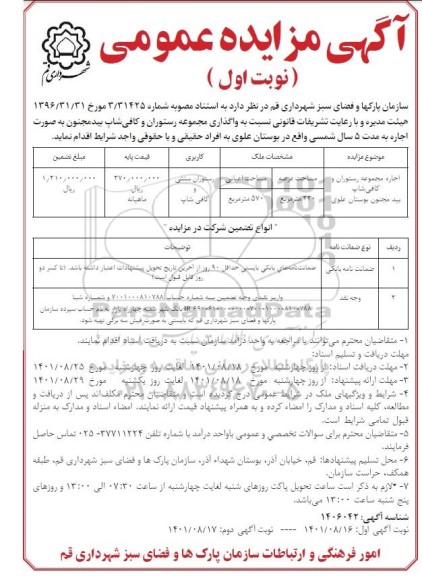 آگهی مزایده عمومی
( نوبت اول )
شهرداری قم
سازمان پارکها و فضای سبز شهرداری قم در نظر دارد به استناد مصوبه شماره ۳/۳۱۴۲۵ مورخ ۱۳۹۶/۳۱/۳۱
هیئت مدیره و با رعایت تشریفات قانونی نسبت به واگذاری مجموعه رستوران و کافی‌شاپ بیدمجنون به صورت
اجاره به مدت ۵ سال شمسی واقع در بوستان علوی به افراد حقیقی و یا حقوقی واجد شرایط اقدام نماید.
موضوع مزایده مشخصات ملک کاربری قیمت پایه مبلغ تضمین
اجاره مجموعه رستوران و کافی‌شاپ بید مجنون بوستان علوی
مساحت عرصه ۴۴۰ مترمربع
مساحت اعیانی ۵۷۰ مترمربع
رستوران سنتی و کافی شاپ
۲۷۰,۰۰۰,۰۰۰ ریال ماهیانه
۱,۲۱۰,۰۰۰,۰۰۰ ریال
" انواع تضمین شرکت در مزایده "
ردیف نوع ضمانت نامه توضیحات
۱ ضمانت نامه بانکی ضمانت‌نامه‌های بانکی بایستی حداقل ۹۰ روز از آخرین تاریخ تحویل پیشنهادات اعتبار داشته باشد. (تا کسر دو روز قابل قبول است)
۲ وجه نقد واریز نقدی وجه تضمین سپرده شماره حساب ۷۰۰۱۰۰۰۸۱۰۷۸۸ و شماره شبا
پارکها و فضای سبز شهرداری قم که بایستی به صورت فیش سه برگی تهیه شود.
۱- متقاضیان محترم می‌توانند با مراجعه به واحد درآمد سازمان نسبت به دریافت اسناد اقدام نمایند.
مهلت دریافت و تسلیم اسناد:
۲- مهلت دریافت اسناد: از روز چهارشنبه مورخ ۱۴۰۱/۰۸/۱۸ لغایت روز چهارشنبه مورخ ۱۴۰۱/۰۸/۲۵
۳- مهلت ارائه پیشنهاد: از روز چهارشنبه مورخ ۱۴۰۱/۰۸/۱۸ لغایت روز یکشنبه مورخ ۱۴۰۱/۰۹/۰۶
۴- شرایط و ویژگیهای ملک در شرایط عمومی درج گردیده است و متقاضیان محترم مکلف‌اند پس از دریافت و
مطالعه، کلیه اسناد و مدارک را امضاء کرده و به همراه پیشنهاد قیمت ارائه نمایند. امضاء اسناد و مدارک به منزله
قبول تمامی شرایط است.
۵- متقاضیان محترم برای سوالات تخصصی و عمومی باواحد درآمد با شماره تلفن ۳۷۷۱۱۲۲۴- ۰۲۵ تماس حاصل
فرمایند.
۶- محل تسلیم پیشنهادها: قم، خیابان آذر، بوستان شهداء آذر، سازمان پارک ها و فضای سبز شهرداری قم، طبقه
همکف، حراست سازمان.
۷- *لازم به ذکر است ساعت تحویل پاکت روزهای شنبه لغایت چهارشنبه از ساعت ۰۷:۳۰ الی ۱۳:۰۰ و روزهای
پنج شنبه ساعت ۱۳:۰۰ می‌باشد.
شناسه آگهی: ۱۴۰۶۰۴۲
نوبت آگهی اول: ۱۴۰۱/۰۸/۱۶ ---- نوبت آگهی دوم: ۱۴۰۱/۰۸/۱۷
امور فرهنگی و ارتباطات سازمان پارک ها و فضای سبز شهرداری قم